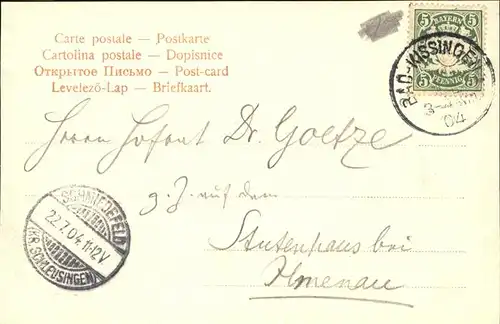 Carte postale — Postkarte
Cartolina postale — Dopisnice
Открытое Письмо — Post-card
Levelező-Lap — Briefkaart.
BAYERN
5 5
5 5
PFENNIG
BAD-KISSINGEN
04
Herrn Hofrat Dr. Goetze
z. Z. auf dem
Stutenhaus bei
Ilmenau
SCHMIEDEFELD
22.7.04.11-12V
(KR. SCHLEUSINGEN)